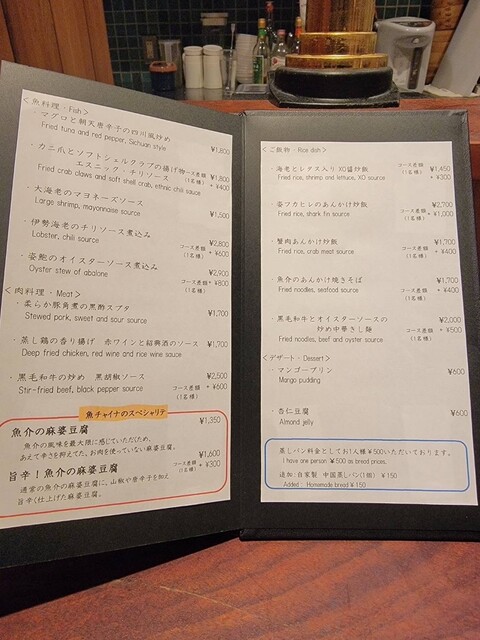 ＜魚料理・Fish＞
・マグロと朝天唐辛子の四川風炒め
Fried tuna and red pepper, Sichuan style ¥1,800
・カニ爪とソフトシェルクラブの揚げ物
エスニック・チリソース コース差額 (1名様) ¥1,800 + ¥400
Fried crab claws and soft shell crab, ethnic chili sauce
・大海老のマヨネーズソース
Large shrimp, mayonnaise source ¥1,500
・伊勢海老のチリソース煮込み ¥2,800
Lobster, chili source コース差額 (1名様) + ¥600
・姿鮑のオイスターソース煮込み ¥2,900
Oyster stew of abalone コース差額 (1名様) + ¥800
＜肉料理・Meat＞
・柔らか豚角煮の黒酢スブタ
Stewed pork, sweet and sour source ¥1,700
・蒸し鶏の香り揚げ 赤ワインと紹興酒のソース ¥1,700
Deep fried chicken, red wine and rice wine sauce
・黒毛和牛の炒め 黒胡椒ソース ¥2,500
Stir-fried beef, black pepper source コース差額 (1名様) + ¥600
魚チャイナのスペシャリテ
魚介の麻婆豆腐 ¥1,350
魚介の風味を最大限に感じていただくため、
あえて辛さを抑えてた、お肉を使っていない麻婆豆腐。
旨辛！魚介の麻婆豆腐 ¥1,600
コース差額 (1名様) + ¥300
通常の魚介の麻婆豆腐に、山椒や唐辛子を加え
旨辛く仕上げた麻婆豆腐。
＜ご飯物・Rice dish＞
・海老とレタス入り XO醤炒飯 コース差額 (1名様) ¥1,450 + ¥300
Fried rice, shrimp and lettuce, XO source
・姿フカヒレのあんかけ炒飯 コース差額 (1名様) ¥2,700 + ¥1,000
Fried rice, shark fin source
・蟹肉あんかけ炒飯 ¥1,700
Fried rice, crab meat source コース差額 (1名様) + ¥400
・魚介のあんかけ焼きそば ¥1,700
Fried noodles, seafood source コース差額 (1名様) + ¥400
・黒毛和牛とオイスターソースの ¥2,000
炒め中華きし麺 コース差額 (1名様) + ¥500
Fried noodles, beef and oyster source
＜デザート・Dessert＞
・マンゴープリン ¥600
Mango pudding
・杏仁豆腐 ¥600
Almond jelly
蒸しパン料金としてお1人様￥500いただいております。
I have one person ￥500 as bread prices.
追加：自家製 中国蒸しパン(1個) ￥150
Added : Homemade bread￥150